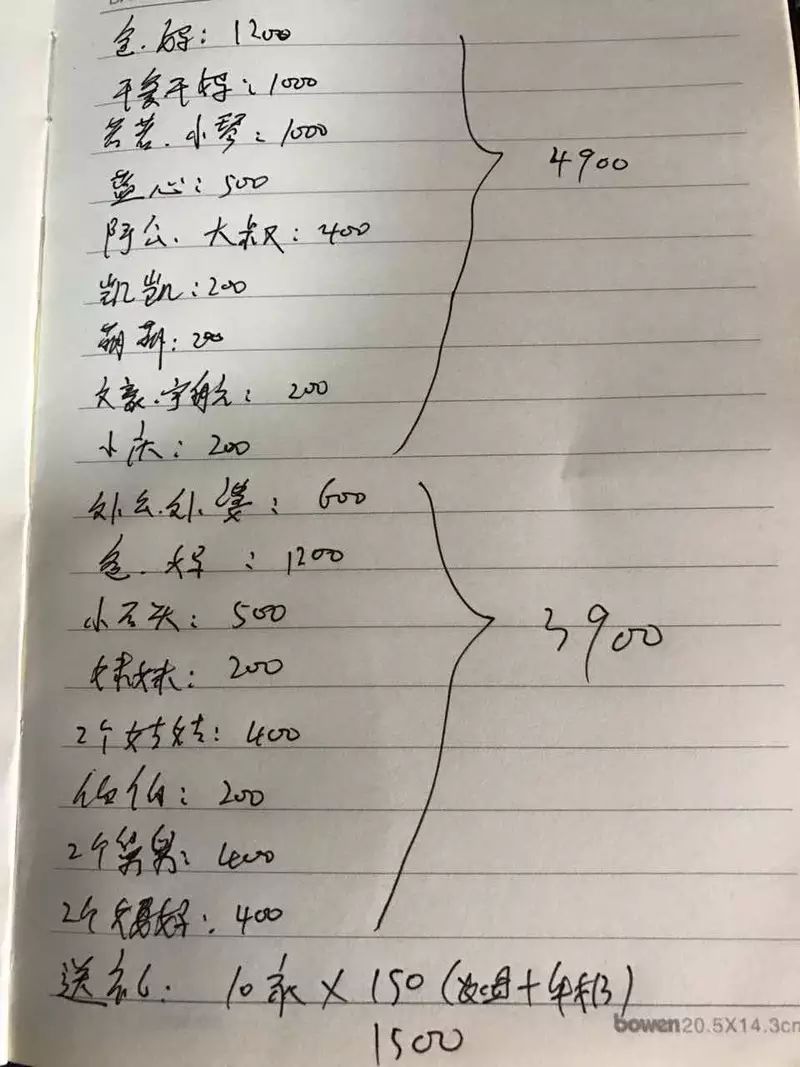 爸.妈: 1200
干爹干妈: 1000
苦苦.小琴: 1000
蓝心: 500
阿公.大叔: 400
凯凯: 200
萌萌: 200
文豪.宇航: 200
小庆: 200
4900
外公.外婆: 600
爸.妈: 1200
小石头: 500
妹妹: 200
2个姑姑: 400
伯伯: 200
2个舅舅: 400
2个舅妈: 400
3900
送礼: 10家×150(烟+年糕)
1500
bowen20.5X14.3cm